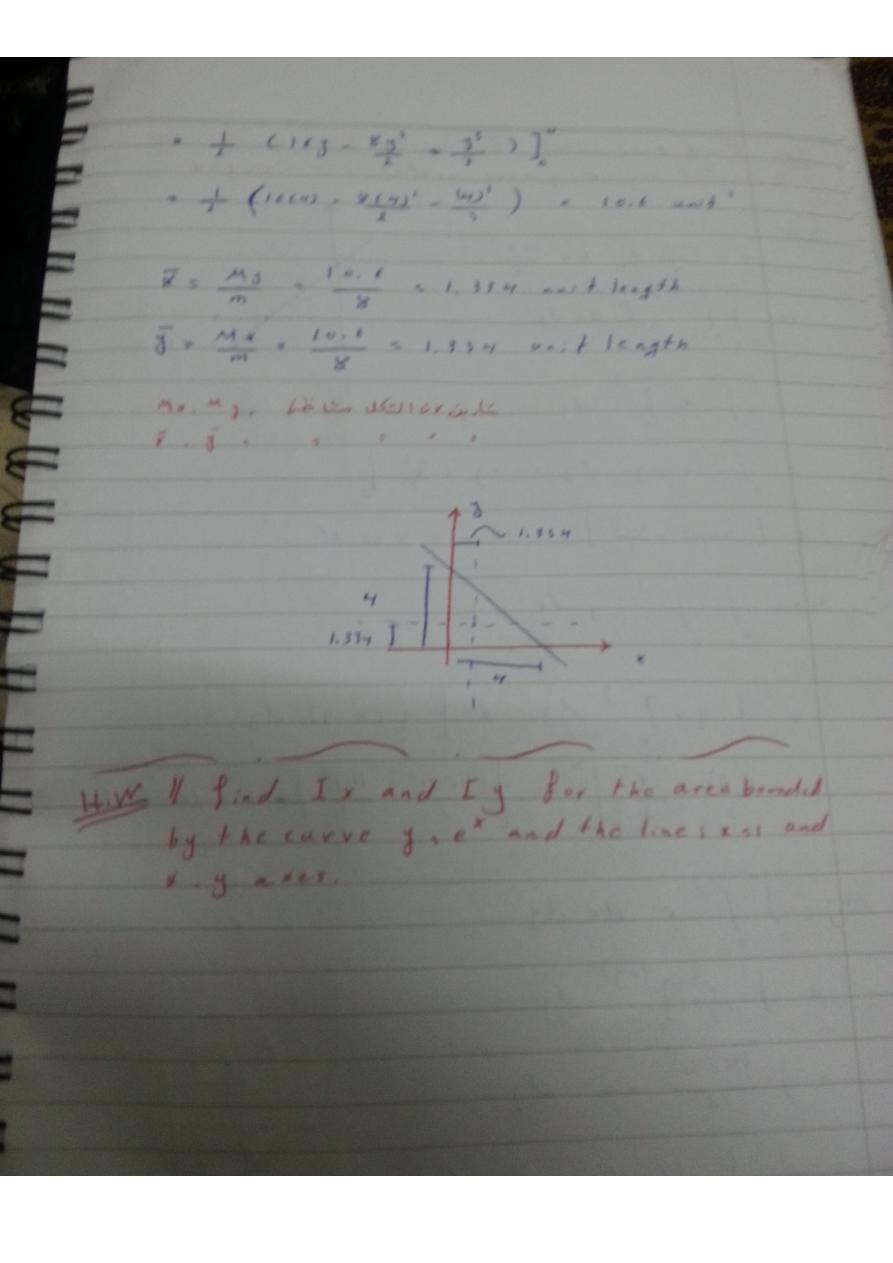 = 1/2 (16y - 8y²/2 - y³/3)]₀⁴
= 1/2 (16(4) - 8(4)²/2 - (4)³/3) = 10.6 unit³
x̄ = My/m = 10.6/8 = 1.334 unit length
ȳ = Mx/m = 10.6/8 = 1.334 unit length
Mx, My,
x̄, ȳ " " " " "
y
1.334
4
1.334
x
4
H.W // find Ix and Iy for the area bounded
by the curve y = eˣ and the lines x=1 and
x-y axes.